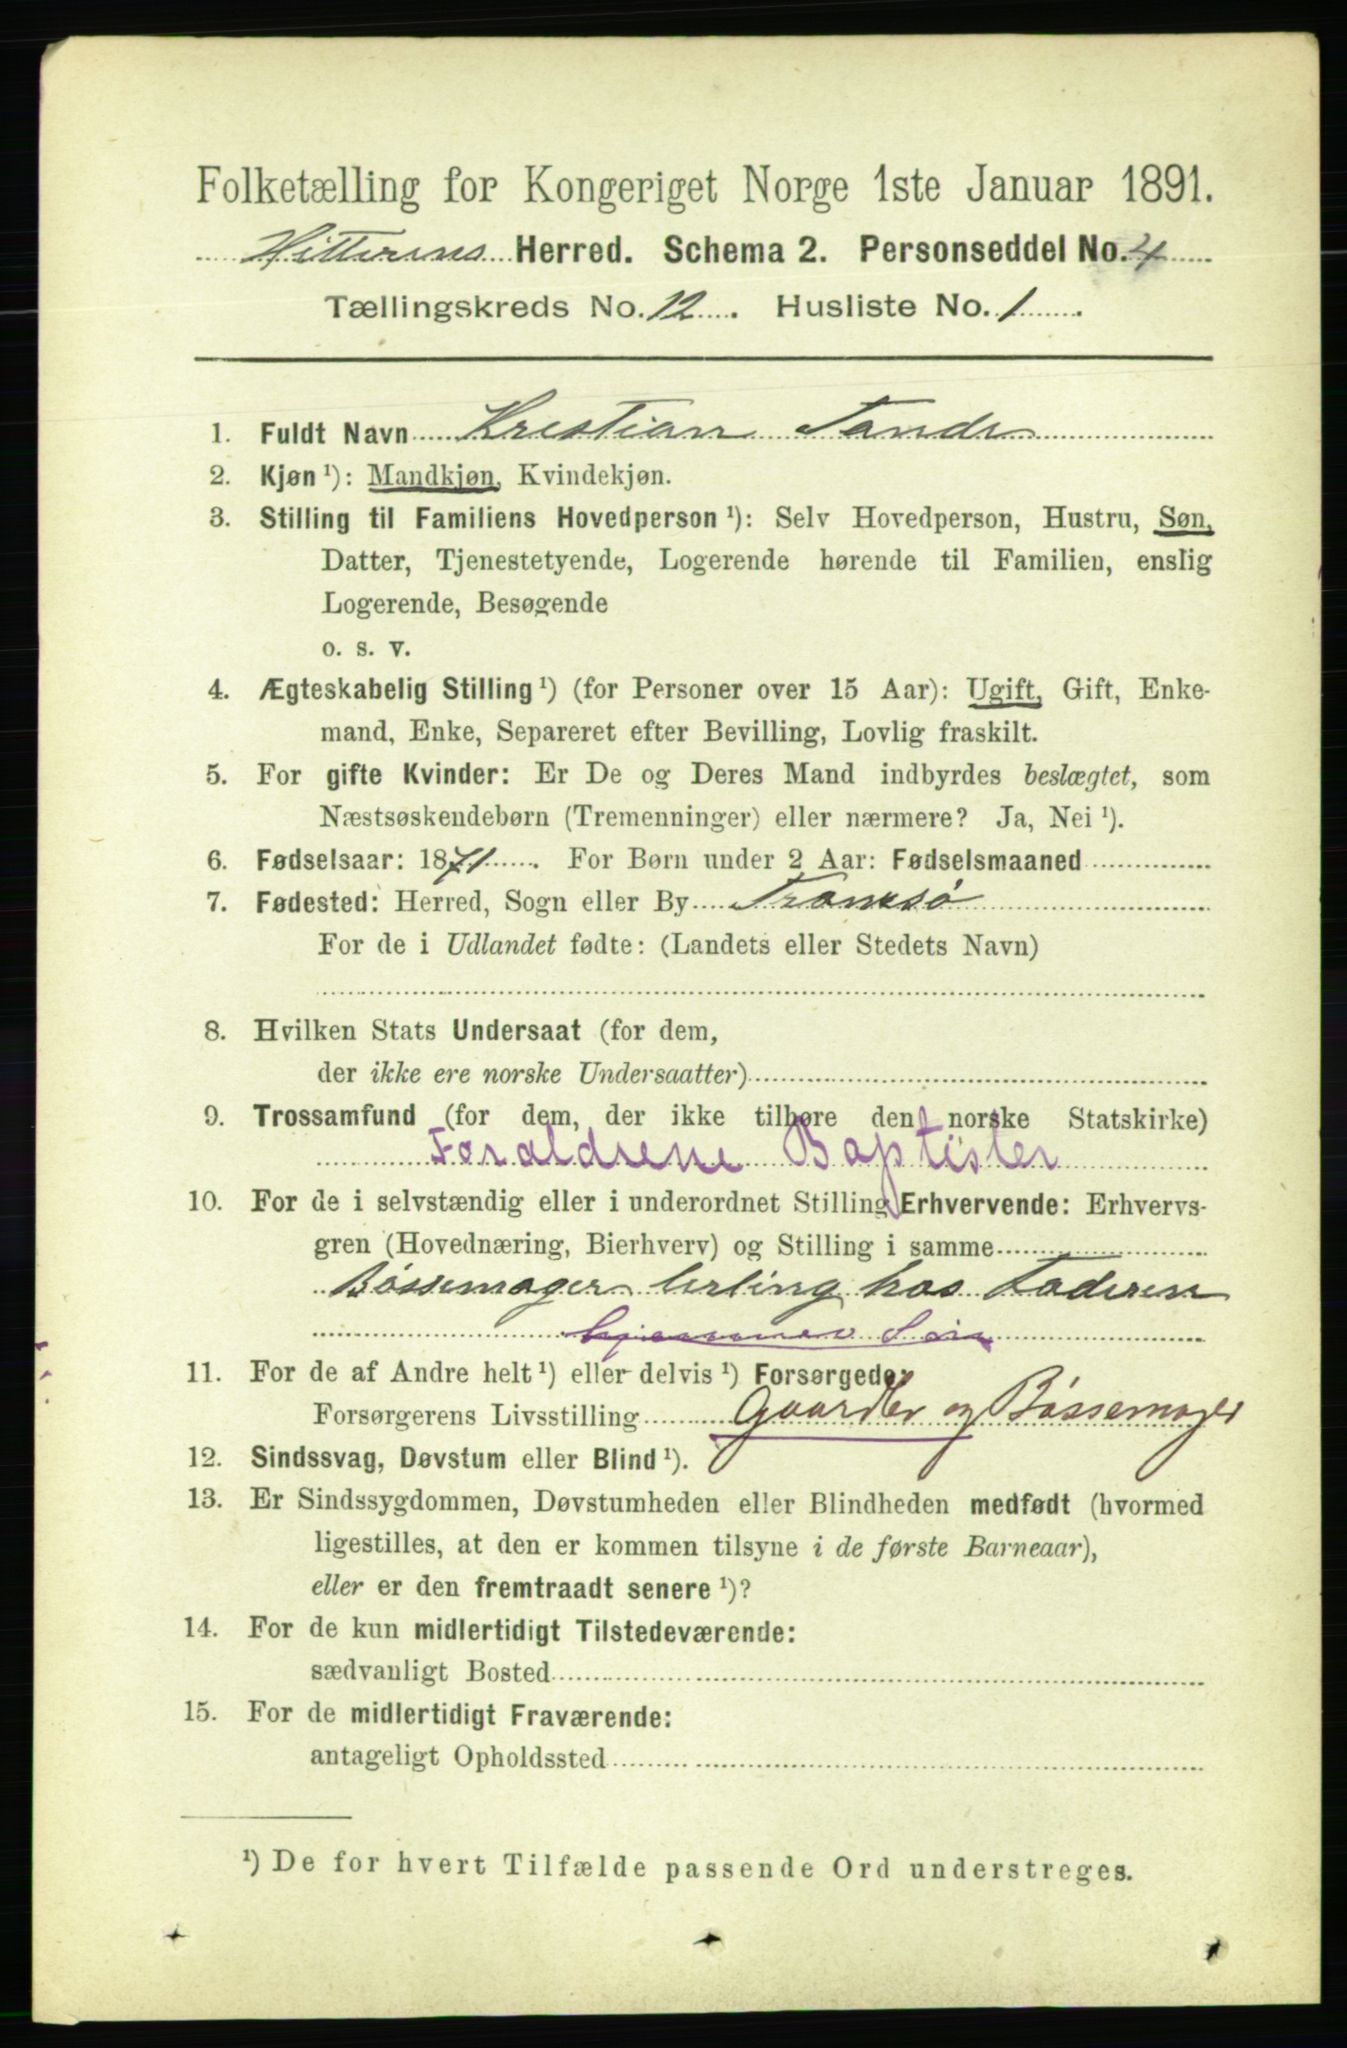 Folketælling for Kongeriget Norge 1ste Januar 1891.
Hitterens Herred. Schema 2. Personseddel No. 4
Tællingskreds No. 12. Husliste No. 1
1. Fuldt Navn Kristian Tande
2. Kjøn ¹): Mandkjøn, Kvindekjøn.
3. Stilling til Familiens Hovedperson ¹): Selv Hovedperson, Hustru, Søn,
Datter, Tjenestetyende, Logerende hørende til Familien, enslig
Logerende, Besøgende
o. s. v.
4. Ægteskabelig Stilling ¹) (for Personer over 15 Aar): Ugift, Gift, Enke-
mand, Enke, Separeret efter Bevilling, Lovlig fraskilt.
5. For gifte Kvinder: Er De og Deres Mand indbyrdes beslægtet, som
Næstsøskendebørn (Tremenninger) eller nærmere? Ja, Nei ¹).
6. Fødselsaar: 1871. For Børn under 2 Aar: Fødselsmaaned
7. Fødested: Herred, Sogn eller By Tromsø
For de i Udlandet fødte: (Landets eller Stedets Navn)
8. Hvilken Stats Undersaat (for dem,
der ikke ere norske Undersaatter)
9. Trossamfund (for dem, der ikke tilhøre den norske Statskirke)
Forældrene Baptister
10. For de i selvstændig eller i underordnet Stilling Erhvervende: Erhvervs-
gren (Hovednæring, Bierhverv) og Stilling i samme
Bøssemager lerling hos Faderen
hjemmev Søn
11. For de af Andre helt ¹) eller delvis ¹) Forsørgede,
Forsørgerens Livsstilling Gaardbr og Bøssemager
12. Sindssvag, Døvstum eller Blind ¹).
13. Er Sindssygdommen, Døvstumheden eller Blindheden medfødt (hvormed
ligestilles, at den er kommen tilsyne i de første Barneaar),
eller er den fremtraadt senere ¹)?
14. For de kun midlertidigt Tilstedeværende:
sædvanligt Bosted
15. For de midlertidigt Fraværende:
antageligt Opholdssted
¹) De for hvert Tilfælde passende Ord understreges.